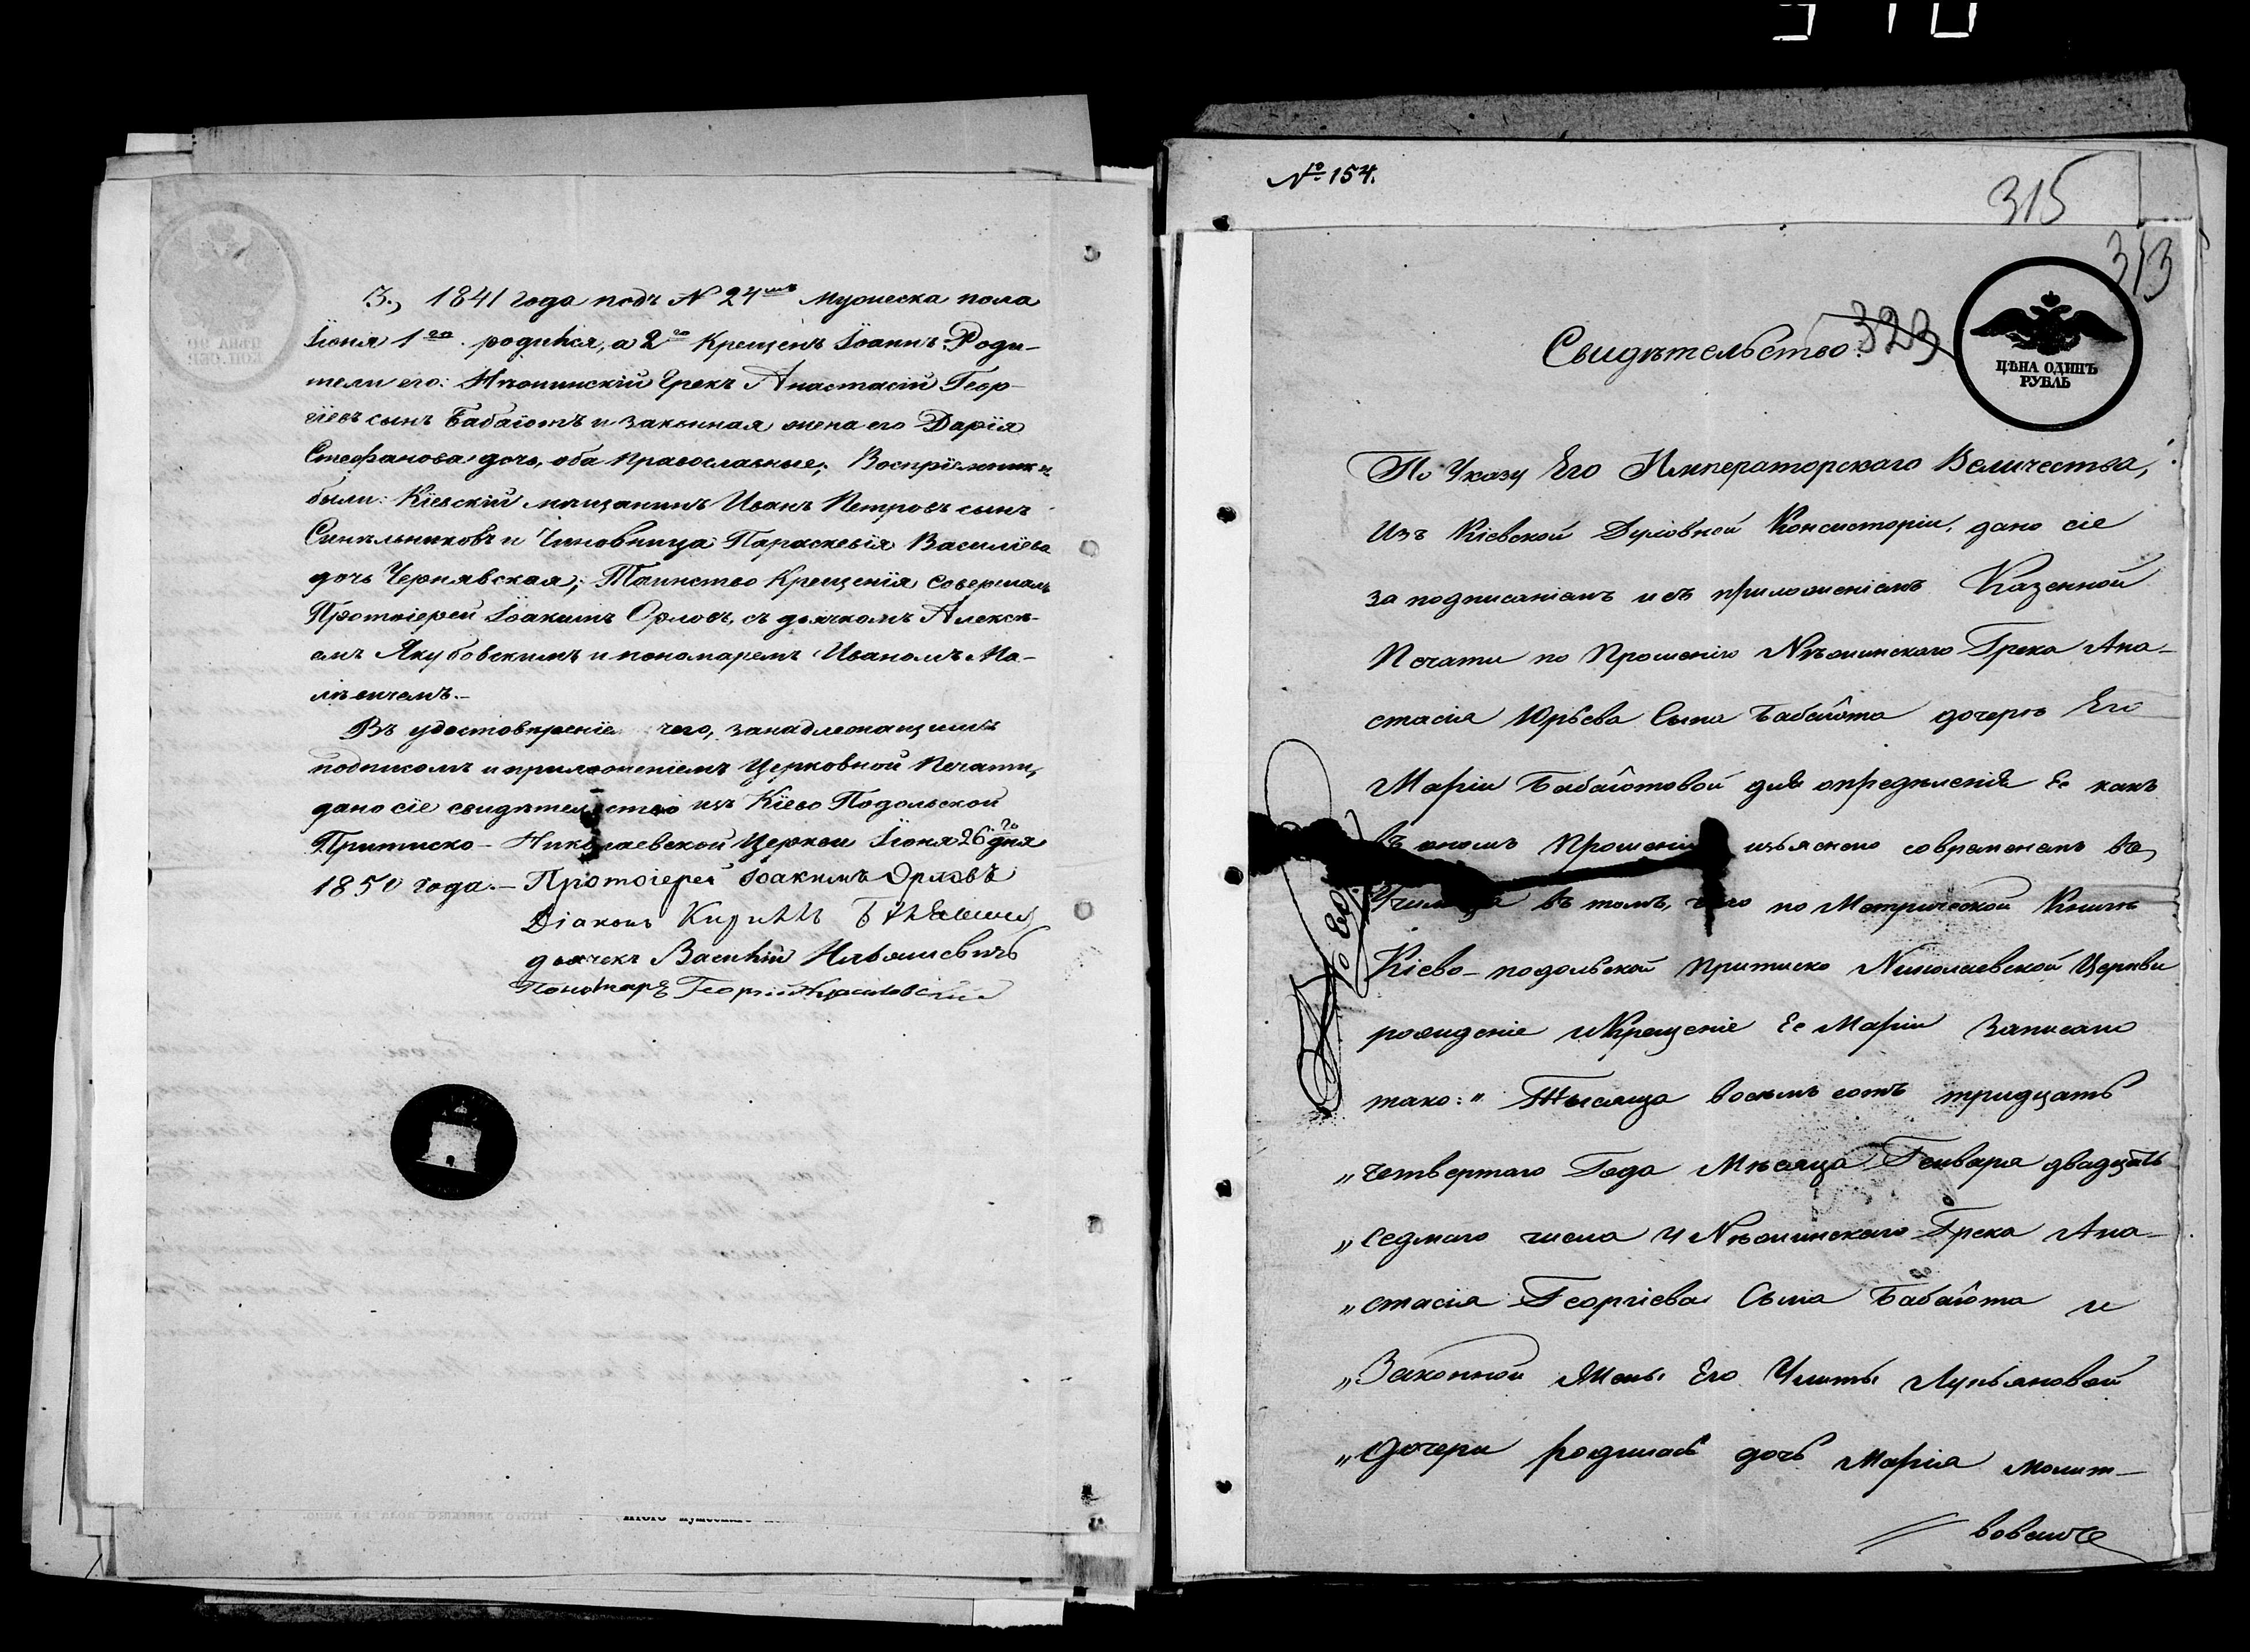 3., 1841 года подъ № 24мъ мужеска пола
Іюня 1го родился, а 2го крещенъ Іоаннъ. Роди-
тели его: Нѣжинскій Грекъ Анастасій Геор-
гіевъ сынъ Бабаіотъ и законная жена его Дарія
Стефанова дочь, оба православные; Воспріемники
были: Кіевскій мѣщанинъ Иванъ Петровъ сынъ
Синѣльниковъ и Чиновница Параскевія Василіева
дочь Чернявская; Таинство Крещенія совершалъ
Протоіерей Іоакимъ Орловъ, съ дьячкомъ Алексѣ-
емъ Якубовскимъ и пономаремъ Иваномъ Ма-
лѣвичемъ.-
Въ удостовѣреніе чего, за надлежащимъ
подписомъ и приложеніемъ Церковной Печати,
дано сіе свидѣтельство изъ Кіево Подольской
Притиско-Николаевской Церкви Іюня 26го дня
1850 года.- Протоіерей Іоакимъ Орловъ
Діаконъ Кириллъ
дьячекъ Василій Ильяшевичъ
Пономарь Георгій
№ 154.
315
313
323
Свидѣтельство.
ЦѢНА ОДИНЪ
РУБЛЬ
По Указу Его Императорскаго Величества,
Изъ Кіевской Духовной Консисторіи, дано сіе
за подписаніемъ и съ приложеніемъ Казенной
Печати по Прошенію Нѣжинскаго Грека Ана-
стасія Юрьева Сына Бабаіота дочери Его
Маріи Бабаіотовой для опредѣленія Ее какъ
въ ономъ Прошеніи изъяснено современемъ въ
Училища въ томъ, что по Метрической Книгѣ
Кіево-подольской Притиско Николаевской Церкви
рожденіе и Крещеніе Ее Маріи Записано
тако: „Тысяща восемь сотъ тридцать
„четвертаго Года Мѣсяца Генваря двадцать
„седмаго числа у Нѣжинскаго Грека Ана-
„стасія Георгіева Сына Бабаіота и
„Законной Жены Его Улиты Лукьяновой
„дочери родилась дочь Марія молит-
„вовалъ